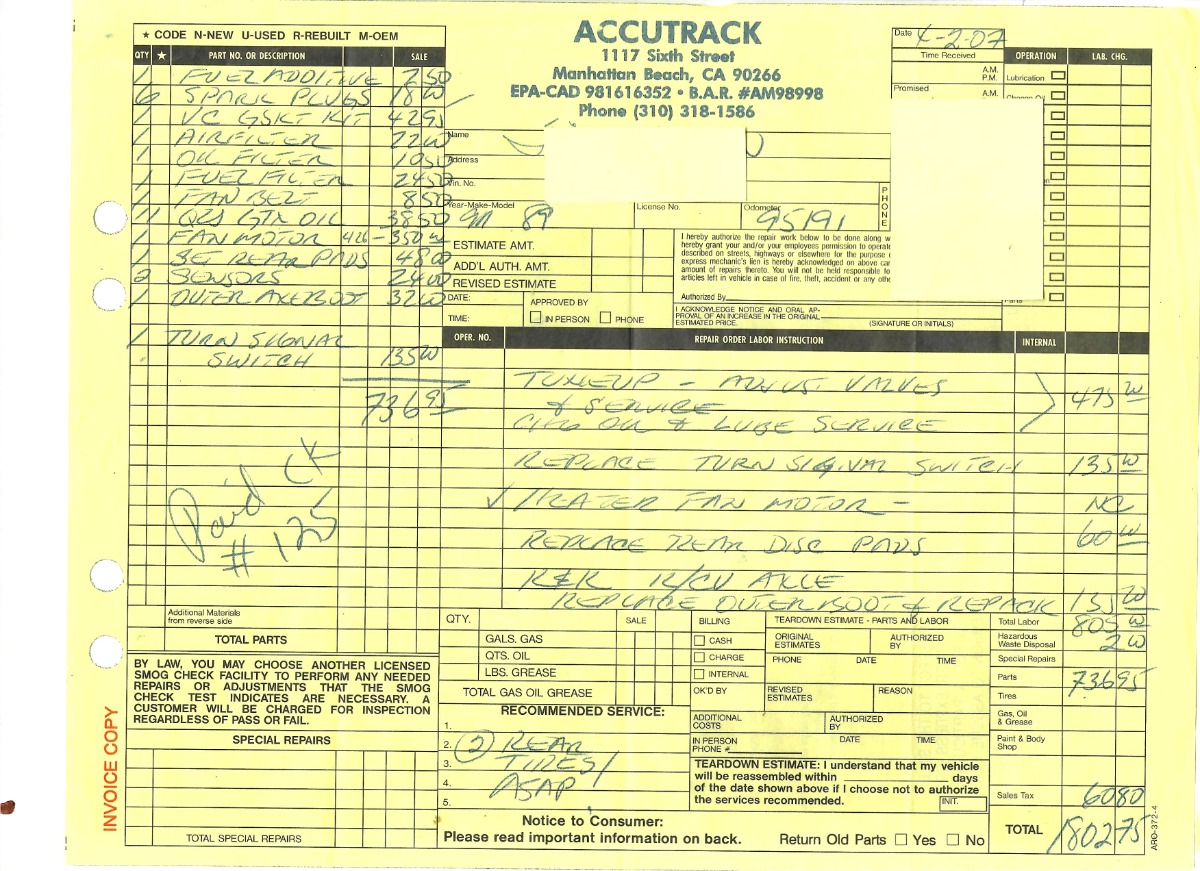 ★ CODE N-NEW U-USED R-REBUILT M-OEM
QTY ★ PART NO. OR DESCRIPTION SALE
1 FUEL ADDITIVE 7 50
6 SPARK PLUGS 18 00
1 VC GSKT KIT 42 95
1 AIRFILTER 22 00
1 OIL FILTER 10 50
1 FUEL FILTER 24 50
1 FAN BELT 8 50
11 QRS GTX OIL 38 50
1 FAN MOTOR 426 - 350 00
1 SET REAR PADS 48 00
2 SENSORS 24 00
1 OUTER AXE BOOT 32 00
1 TURN SIGNAL
SWITCH 135 00
736 95
Paid CK
# 125
Additional Materials
from reverse side
TOTAL PARTS
BY LAW, YOU MAY CHOOSE ANOTHER LICENSED
SMOG CHECK FACILITY TO PERFORM ANY NEEDED
REPAIRS OR ADJUSTMENTS THAT THE SMOG
CHECK TEST INDICATES ARE NECESSARY. A
CUSTOMER WILL BE CHARGED FOR INSPECTION
REGARDLESS OF PASS OR FAIL.
SPECIAL REPAIRS
TOTAL SPECIAL REPAIRS
INVOICE COPY
ACCUTRACK
1117 Sixth Street
Manhattan Beach, CA 90266
EPA-CAD 981616352 • B.A.R. #AM98998
Phone (310) 318-1586
Date 4-2-07
Time Received
A.M.
P.M.
Promised
A.M.
OPERATION LAB. CHG.
Lubrication
Name
Address
Vin. No.
Year-Make-Model 911 89
License No.
Odometer 95191
PHONE
ESTIMATE AMT.
ADD'L AUTH. AMT.
REVISED ESTIMATE
DATE:
TIME:
APPROVED BY
IN PERSON PHONE
I hereby authorize the repair work below to be done along w
hereby grant your and/or your employees permission to operate
described on streets, highways or elsewhere for the purpose o
express mechanic's lien is hereby acknowledged on above car
amount of repairs thereto. You will not be held responsible fo
articles left in vehicle in case of fire, theft, accident or any othe
Authorized By
I ACKNOWLEDGE NOTICE AND ORAL AP-
PROVAL OF AN INCREASE IN THE ORIGINAL
ESTIMATED PRICE.
(SIGNATURE OR INITIALS)
Parts
OPER. NO. REPAIR ORDER LABOR INSTRUCTION INTERNAL
TUNEUP - ADJUST VALVES
& SERVICE 475 00
CHG OIL & LUBE SERVICE
REPLACE TURN SIGNAL SWITCH 135 00
FAN MOTOR - NC
REPLACE REAR DISC PADS 60 00
R&R R/CV AXLE
REPLACE OUTER BOOT & REPACK 135 00
QTY. SALE
GALS. GAS
QTS. OIL
LBS. GREASE
TOTAL GAS OIL GREASE
BILLING
CASH
CHARGE
INTERNAL
OK'D BY
TEARDOWN ESTIMATE - PARTS AND LABOR
ORIGINAL
ESTIMATES
AUTHORIZED
BY
PHONE DATE TIME
REVISED
ESTIMATES
REASON
ADDITIONAL
COSTS
AUTHORIZED
BY
IN PERSON
PHONE #
DATE TIME
TEARDOWN ESTIMATE: I understand that my vehicle
will be reassembled within ________ days
of the date shown above if I choose not to authorize
the services recommended.
INIT.
RECOMMENDED SERVICE:
1.
2. (2) REAR
3. TIRES/
4. ASAP
5.
Notice to Consumer:
Please read important information on back.
Return Old Parts Yes No
Total Labor 805 00
Hazardous
Waste Disposal 2 00
Special Repairs
Parts 736 95
Tires
Gas, Oil
& Grease
Paint & Body
Shop
Sales Tax 60 80
TOTAL 1802 75
ARO-372-4